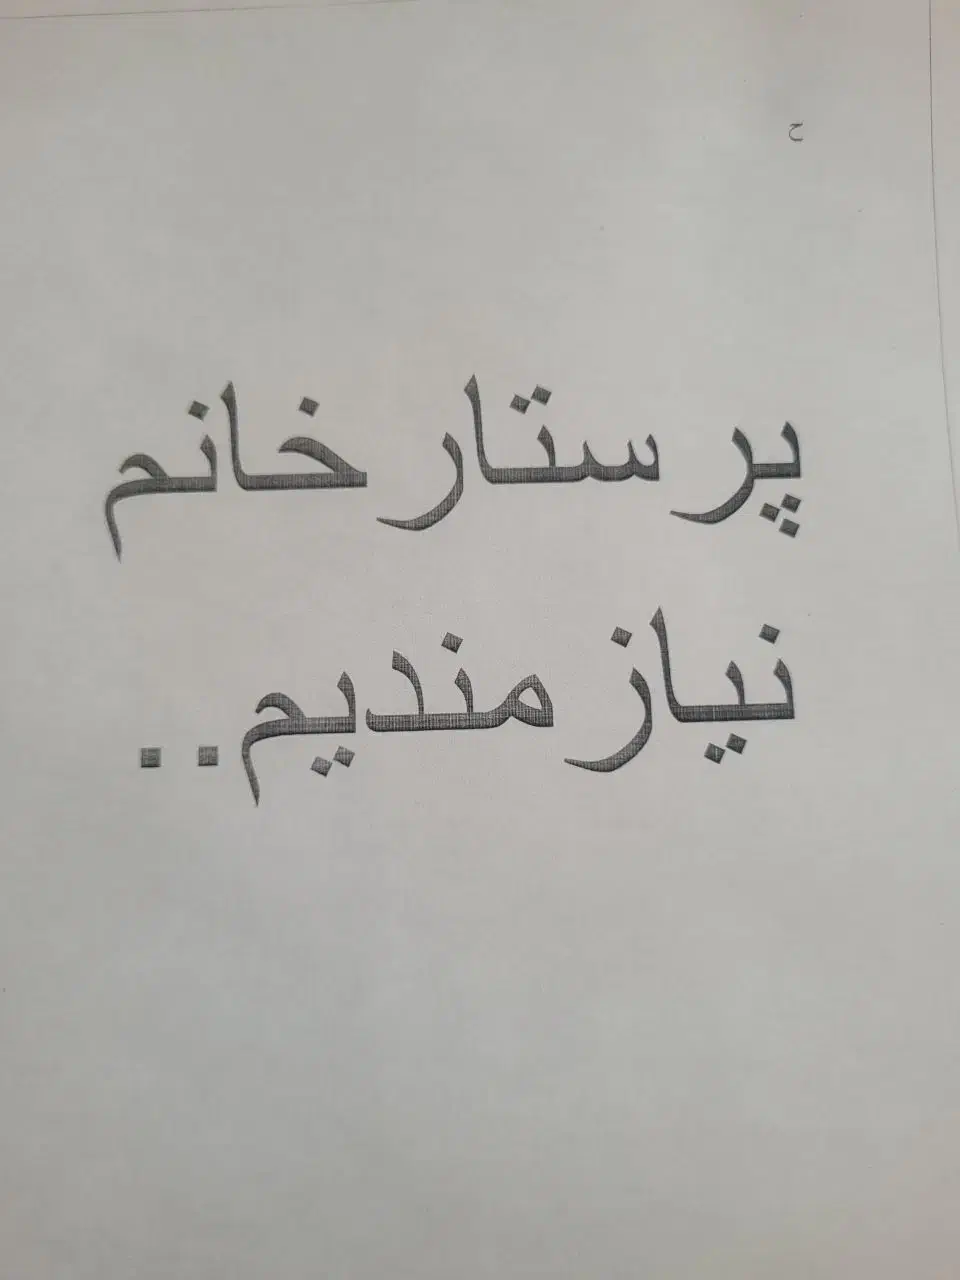 ح
پرستار خانم
نیازمندیم..